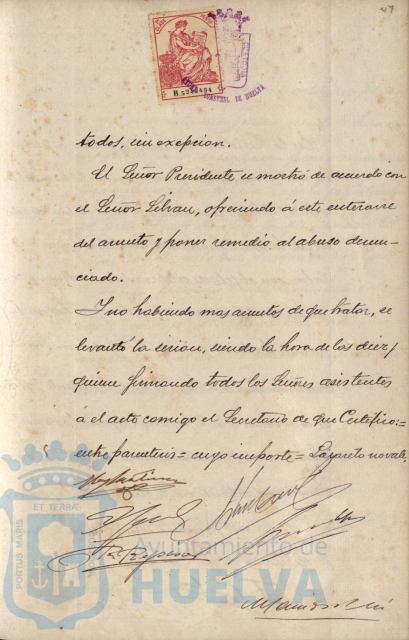 47
H.5,340,494
MUNICIPAL DE HUELVA
todos, sin excepcion.
El Señor Presidente se mostró de acuerdo con
el Señor Silvan, ofreciendo á este enterarse
del asunto y poner remedio al abuso denun-
ciado.
Y no habiendo mas asuntos de que tratar, se
levantó la sesion, siendo la hora de las diez y
quince firmando todos los Señores asistentes
á el acto comigo el Secretario de que Certifico:=
entre parentesis= cuyo importe= Lazareto no vale.
PORTUS MARIS
ET TERRAE
Ayuntamiento de
HUELVA